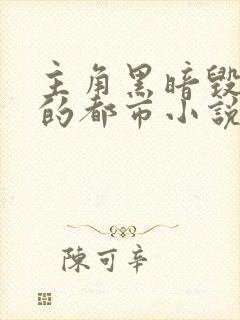 主角黑暗毁
的都市小說
陳可辛